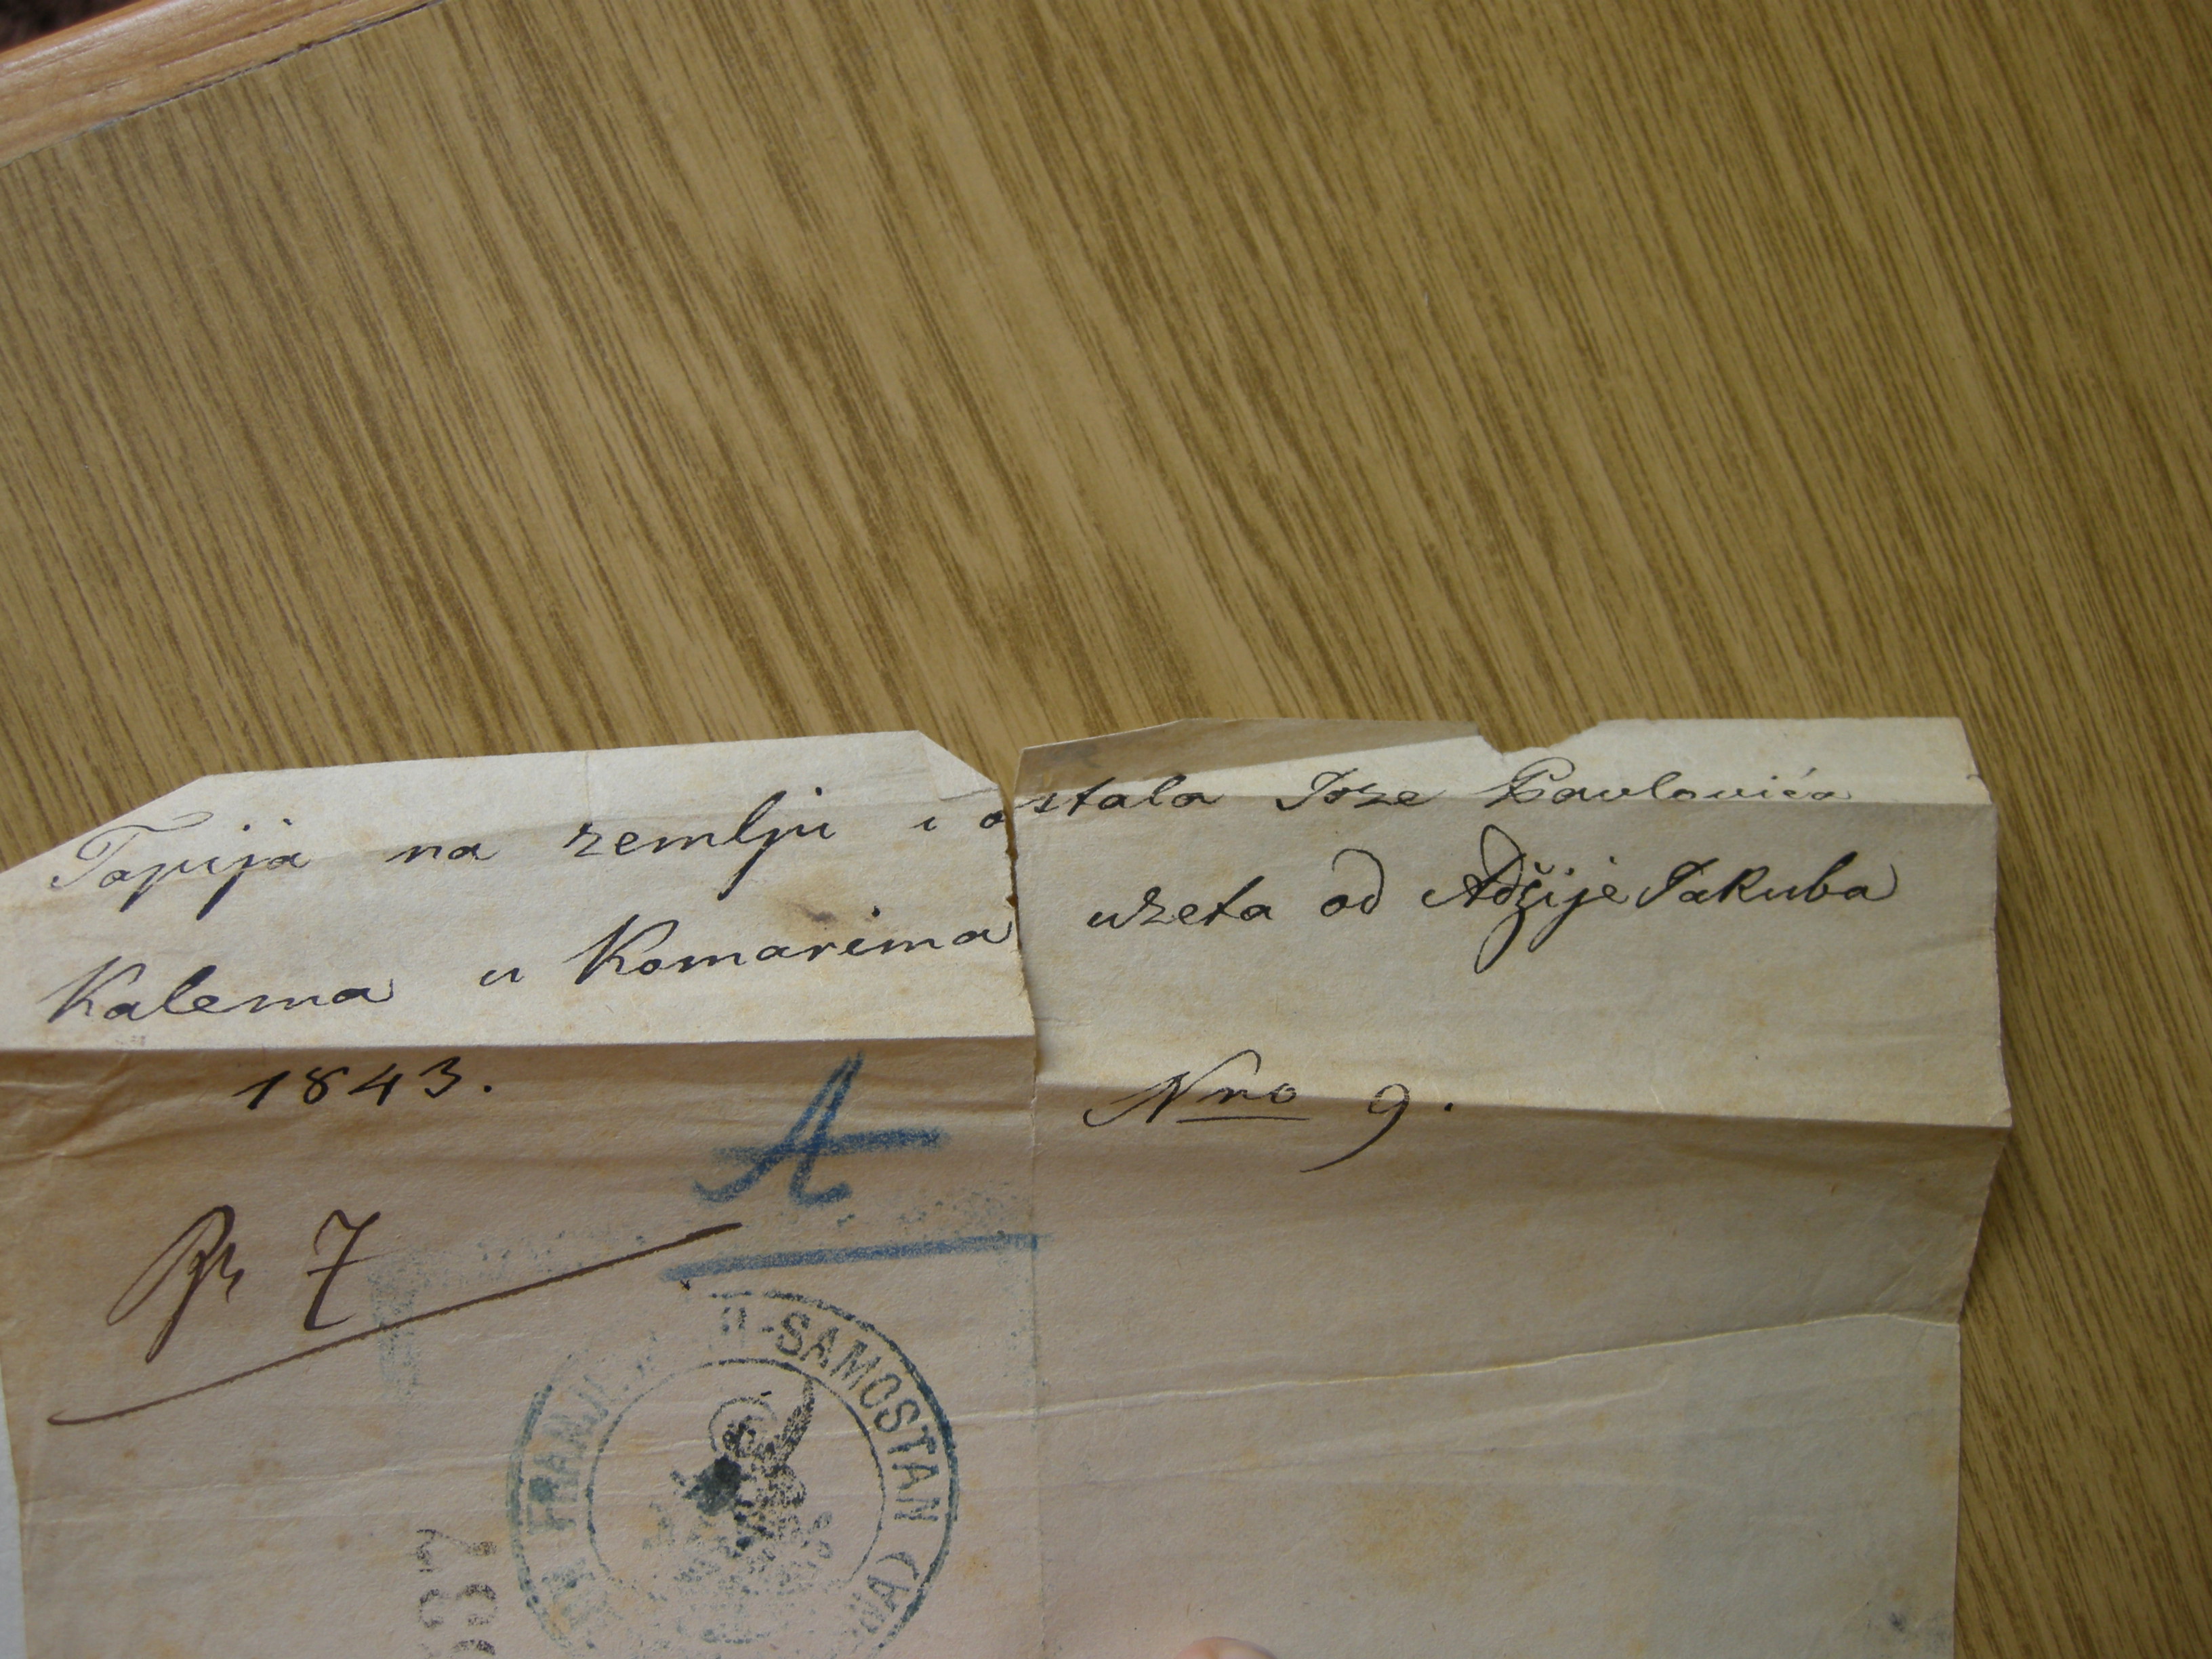 Tapija na zemlju i ostala Joze Pavlovića
Kalema u Komarima uzeta od Adžije Jakuba
1843. Nro 9.
A
7
SAMOSTAN